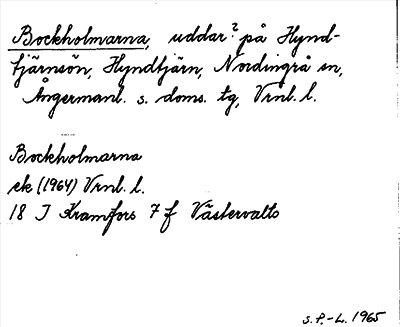 Bockholmarna, uddar? på Hynd-
tjärnsön, Hyndtjärn, Nordingrå sn,
Ångermanl. s. doms. tg, Vrnl. l.
Bockholmarna
ek (1964) Vrnl. l.
18 I Kramfors 7 f Västervalto
S.P.-L. 1965